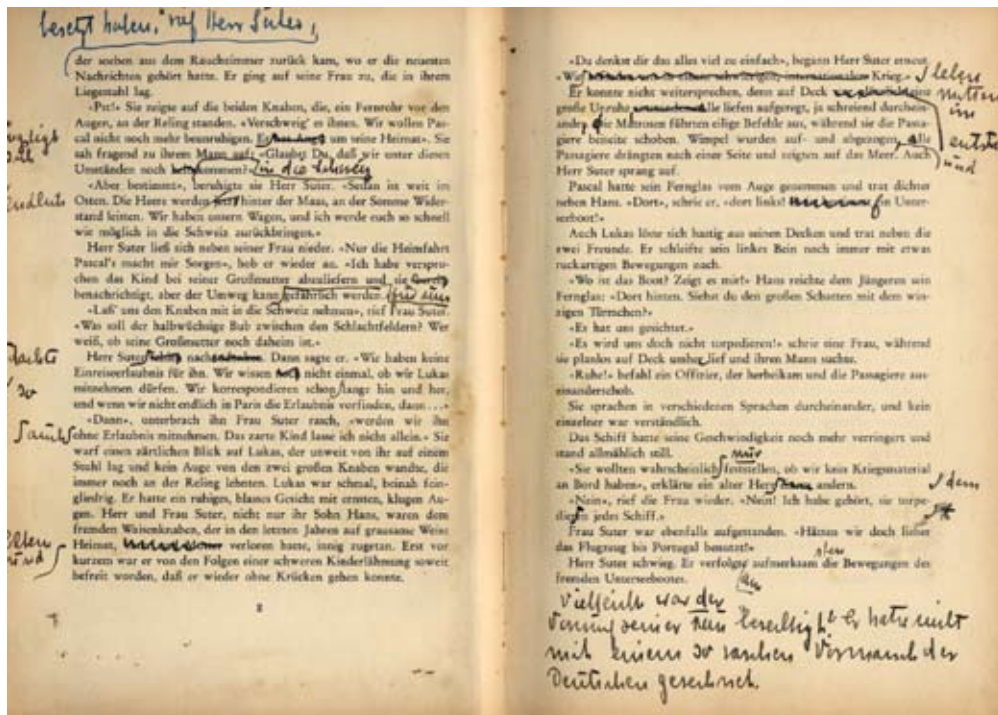 besetzt haben," rief Herr Suter,
der soeben aus dem Rauchzimmer zurück kam, wo er die neuesten
Nachrichten gehört hatte. Er ging auf seine Frau zu, die in ihrem
Liegestuhl lag.
«Pst!» Sie zeigte auf die beiden Knaben, die, ein Fernrohr vor den
Augen, an der Reling standen. «Verschweig' es ihnen. Wir wollen Pas-
cal nicht noch mehr beunruhigen. Er um seine Heimat». Sie
sah fragend zu ihrem Mann auf: «Glaubst Du, daß wir unter diesen
Umständen noch kommen?» in die Schweiz
«Aber bestimmt», beruhigte sie Herr Suter. «Sedan ist weit im
Osten. Die Heere werden hinter der Maas, an der Somme Wider-
stand leisten. Wir haben unsern Wagen, und ich werde euch so schnell
wie möglich in die Schweiz zurückbringen.»
Herr Suter ließ sich neben seiner Frau nieder. «Nur die Heimfahrt
Pascal's macht mir Sorgen», hob er wieder an. «Ich habe verspro-
chen das Kind bei seiner Großmutter abzuliefern und sie bereits
benachrichtigt, aber der Umweg kann gefährlich werden
«Laß' uns den Knaben mit in die Schweiz nehmen», rief Frau Suter.
«Was soll der halbwüchsige Bub zwischen den Schlachtfeldern? Wer
weiß, ob seine Großmutter noch daheim ist.»
dachte
Herr Suter nach. Dann sagte er. «Wir haben keine
Einreiseerlaubnis für ihn. Wir wissen nicht einmal, ob wir Lukas
so
mitnehmen dürfen. Wir korrespondieren schon lange hin und her,
und wenn wir nicht endlich in Paris die Erlaubnis vorfinden, dann . . .»
«Dann», unterbrach ihn Frau Suter rasch, «werden wir ihn
auch ohne Erlaubnis mitnehmen. Das zarte Kind lasse ich nicht allein.» Sie
warf einen zärtlichen Blick auf Lukas, der unweit von ihr auf einem
Stuhl lag und kein Auge von den zwei großen Knaben wandte, die
immer noch an der Reling lehnten. Lukas war schmal, beinah fein-
gliedrig. Er hatte ein ruhiges, blasses Gesicht mit ernsten, klugen Au-
gen. Herr und Frau Suter, nicht nur ihr Sohn Hans, waren dem
fremden Waisenknaben, der in den letzten Jahren auf grausame Weise
Eltern
und
Heimat, verloren hatte, innig zugetan. Erst vor
kurzem war er von den Folgen einer schweren Kinderlähmung soweit
befreit worden, daß er wieder ohne Krücken gehen konnte.
8
«Da denkst dir das alles viel zu einfach», begann Herr Suter erneut.
«Wir Krieg.»
leben
mitten
im
Er konnte nicht weitersprechen, denn auf Deck
große Unruhe alle liefen aufgeregt, ja schreiend durchein-
ander, die Matrosen führten eilige Befehle aus, während sie die Passa-
giere beiseite schoben. Wimpel wurden auf- und abgezogen, alle
und
Passagiere drängten nach einer Seite und zeigten auf das Meer. Auch
Herr Suter sprang auf.
Pascal hatte sein Fernglas vom Auge genommen und trat dichter
neben Hans. «Dort», schrie er, «dort links! ein Unter-
seeboot!»
Auch Lukas löste sich hastig aus seinen Decken und trat neben die
zwei Freunde. Er schleifte sein linkes Bein noch immer mit etwas
ruckartigen Bewegungen nach.
«Wo ist das Boot? Zeigt es mir!» Hans reichte dem Jüngeren sein
Fernglas: «Dort hinten. Siehst du den großen Schatten mit dem win-
zigen Türmchen?»
«Es hat uns gesichtet.»
«Es wird uns doch nicht torpedieren!» schrie eine Frau, während
sie planlos auf Deck umher lief und ihren Mann suchte.
«Ruhe!» befahl ein Offizier, der herbeikam und die Passagiere aus-
einanderschob.
Sie sprachen in verschiedenen Sprachen durcheinander, und kein
einzelner war verständlich.
Das Schiff hatte seine Geschwindigkeit noch mehr verringert und
stand allmählich still.
nur
«Sie wollten wahrscheinlich feststellen, ob wir kein Kriegsmaterial
an Bord haben», erklärte ein alter Herr andern.
dem
«Nein», rief die Frau wieder. «Nein! Ich habe gehört, sie torpe-
dieren jedes Schiff.»
Frau Suter war ebenfalls aufgestanden. «Hätten wir doch lieber
das Flugzeug bis Portugal benutzt!»
Herr Suter schwieg. Er verfolgte aufmerksam die Bewegungen des
fremden Unterseebootes.
Vielleicht war der
er hatte nicht
mit einem so raschen Vormarsch der
Deutschen gerechnet.